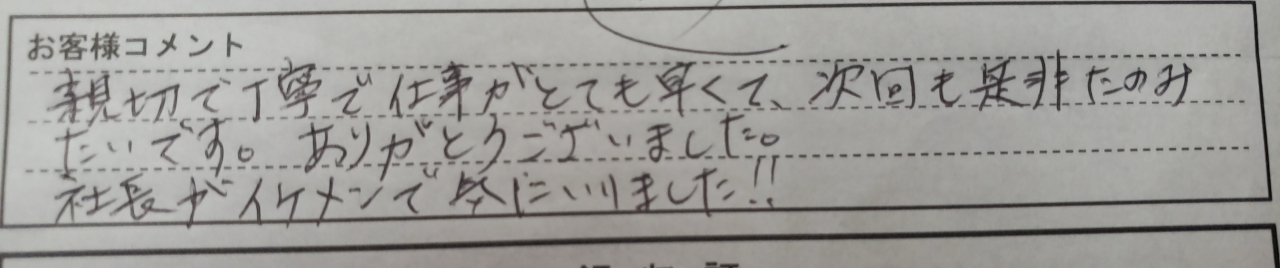 お客様コメント
親切で丁寧で仕事がとても早くて、次回も是非たのみ
たいです。ありがとうございました。
社長がイケメンで気にいりました!!